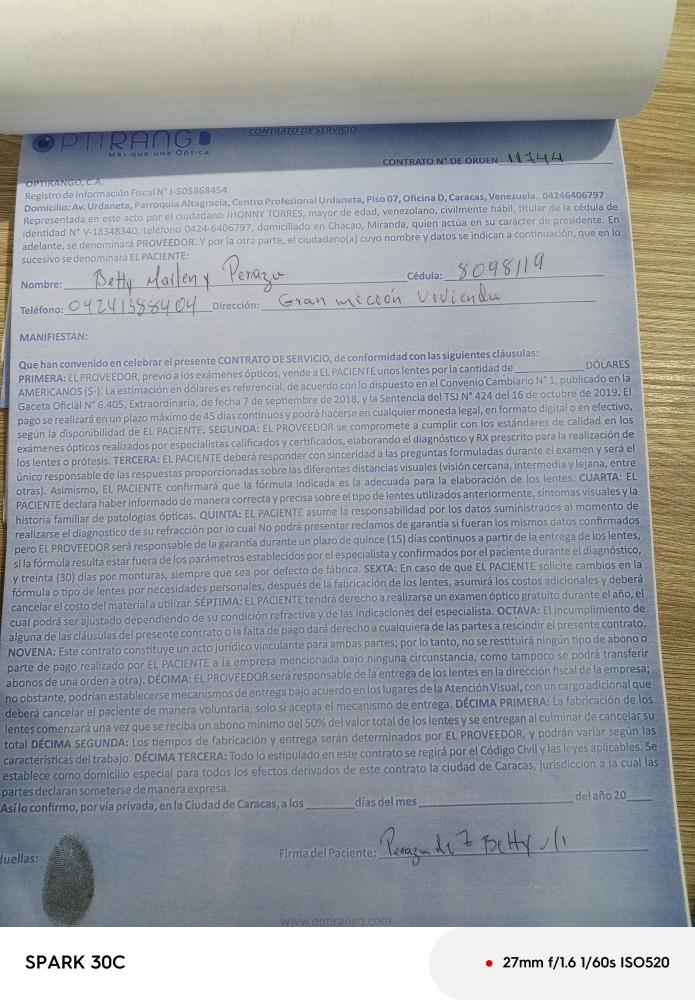 OPTIRANGO
Más que una Óptica
CONTRATO DE SERVICIO
CONTRATO N° DE ORDEN 11744
OPTIRANGO, C.A.
Registro de Información Fiscal N° J-505868454
Domicilio: Av. Urdaneta, Parroquia Altagracia, Centro Profesional Urdaneta, Piso 07, Oficina D, Caracas, Venezuela. 04246406797
Representada en este acto por el ciudadano JHONNY TORRES, mayor de edad, venezolano, civilmente hábil, titular de la cédula de
identidad N° V-18348340, teléfono 0424-6406797, domiciliado en Chacao, Miranda, quien actúa en su carácter de presidente. En
adelante, se denominará PROVEEDOR. Y por la otra parte, el ciudadano(a) cuyo nombre y datos se indican a continuación, que en lo
sucesivo se denominará EL PACIENTE:
Nombre: Betty Marleny Perazu Cédula: 8098119
Teléfono: 04241388404 Dirección: Gran mición Vivienda
MANIFIESTAN:
Que han convenido en celebrar el presente CONTRATO DE SERVICIO, de conformidad con las siguientes cláusulas:
PRIMERA: EL PROVEEDOR, previo a los exámenes ópticos, vende a EL PACIENTE unos lentes por la cantidad de ____________ DÓLARES
AMERICANOS ($-). La estimación en dólares es referencial, de acuerdo con lo dispuesto en el Convenio Cambiario N° 1, publicado en la
Gaceta Oficial N° 6.405, Extraordinaria, de fecha 7 de septiembre de 2018, y la Sentencia del TSJ N° 424 del 16 de octubre de 2019. El
pago se realizará en un plazo máximo de 45 días continuos y podrá hacerse en cualquier moneda legal, en formato digital o en efectivo,
según la disponibilidad de EL PACIENTE. SEGUNDA: EL PROVEEDOR se compromete a cumplir con los estándares de calidad en los
exámenes ópticos realizados por especialistas calificados y certificados, elaborando el diagnóstico y RX prescrito para la realización de
los lentes o prótesis. TERCERA: EL PACIENTE deberá responder con sinceridad a las preguntas formuladas durante el examen y será el
único responsable de las respuestas proporcionadas sobre las diferentes distancias visuales (visión cercana, intermedia y lejana, entre
otras). Asimismo, EL PACIENTE confirmará que la fórmula indicada es la adecuada para la elaboración de los lentes. CUARTA: EL
PACIENTE declara haber informado de manera correcta y precisa sobre el tipo de lentes utilizados anteriormente, síntomas visuales y la
historia familiar de patologías ópticas. QUINTA: EL PACIENTE asume la responsabilidad por los datos suministrados al momento de
realizarse el diagnostico de su refracción por lo cual No podrá presentar reclamos de garantía si fueran los mismos datos confirmados
pero EL PROVEEDOR será responsable de la garantía durante un plazo de quince (15) días continuos a partir de la entrega de los lentes,
si la fórmula resulta estar fuera de los parámetros establecidos por el especialista y confirmados por el paciente durante el diagnóstico,
y treinta (30) días por monturas, siempre que sea por defecto de fábrica. SEXTA: En caso de que EL PACIENTE solicite cambios en la
fórmula o tipo de lentes por necesidades personales, después de la fabricación de los lentes, asumirá los costos adicionales y deberá
cancelar el costo del material a utilizar. SÉPTIMA: EL PACIENTE tendrá derecho a realizarse un examen óptico gratuito durante el año, el
cual podrá ser ajustado dependiendo de su condición refractiva y de las indicaciones del especialista. OCTAVA: El incumplimiento de
alguna de las cláusulas del presente contrato o la falta de pago dará derecho a cualquiera de las partes a rescindir el presente contrato.
NOVENA: Este contrato constituye un acto jurídico vinculante para ambas partes; por lo tanto, no se restituirá ningún tipo de abono o
parte de pago realizado por EL PACIENTE a la empresa mencionada bajo ninguna circunstancia, como tampoco se podrá transferir
abonos de una orden a otra). DÉCIMA: EL PROVEEDOR será responsable de la entrega de los lentes en la dirección fiscal de la empresa;
no obstante, podrían establecerse mecanismos de entrega bajo acuerdo en los lugares de la Atención Visual, con un cargo adicional que
deberá cancelar el paciente de manera voluntaria, solo si acepta el mecanismo de entrega. DÉCIMA PRIMERA: La fabricación de los
lentes comenzará una vez que se reciba un abono mínimo del 50% del valor total de los lentes y se entregan al culminar de cancelar su
total DÉCIMA SEGUNDA: Los tiempos de fabricación y entrega serán determinados por EL PROVEEDOR, y podrán variar según las
características del trabajo. DÉCIMA TERCERA: Todo lo estipulado en este contrato se regirá por el Código Civil y las leyes aplicables. Se
establece como domicilio especial para todos los efectos derivados de este contrato la ciudad de Caracas, jurisdicción a la cual las
partes declaran someterse de manera expresa.
Así lo confirmo, por vía privada, en la Ciudad de Caracas, a los ________ días del mes ____________________ del año 20____
Huellas:
Firma del Paciente: Perazu de Betty
www.optirango.com
SPARK 30C
27mm f/1.6 1/60s ISO520